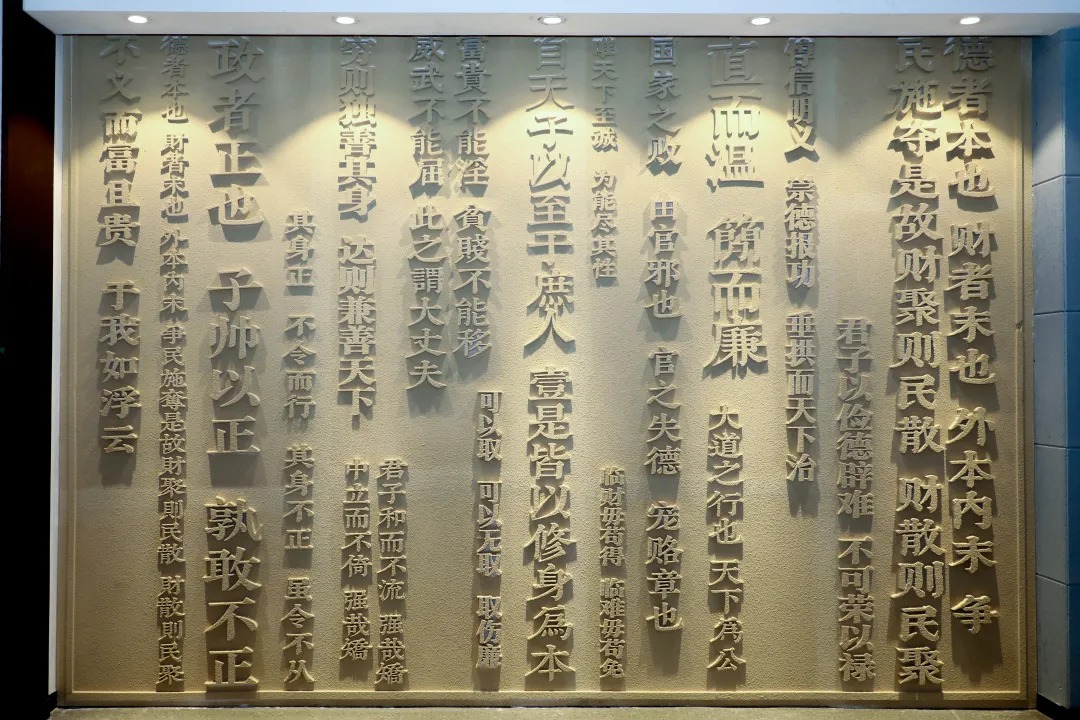 德者本也 财者末也 外本内末 争
民施夺是故财聚则民散 财散则民聚
君子以俭德辟难 不可荣以禄
惇信明义 崇德报功 垂拱而天下治
直而温 簡而廉
大道之行也 天下為公
国家之败 由官邪也 官之失德 宠赂章也
天下至诚 为能尽其性
临财毋苟得 临难毋苟免
自天子以至于庶人 壹是皆以修身為本
富貴不能淫 貧賤不能移
可以取 可以无取 取伤廉
威武不能屈 此之謂大丈夫
君子和而不流 强哉矯
穷则独善其身 达则兼善天下
中立而不倚 强哉矯
其身正 不令而行 其身不正 虽令不从
政者正也 子帅以正 孰敢不正
德者本也 財者末也 外本內末 争民施奪是故財聚則民散 財散則民聚
不义而富且贵 于我如浮云